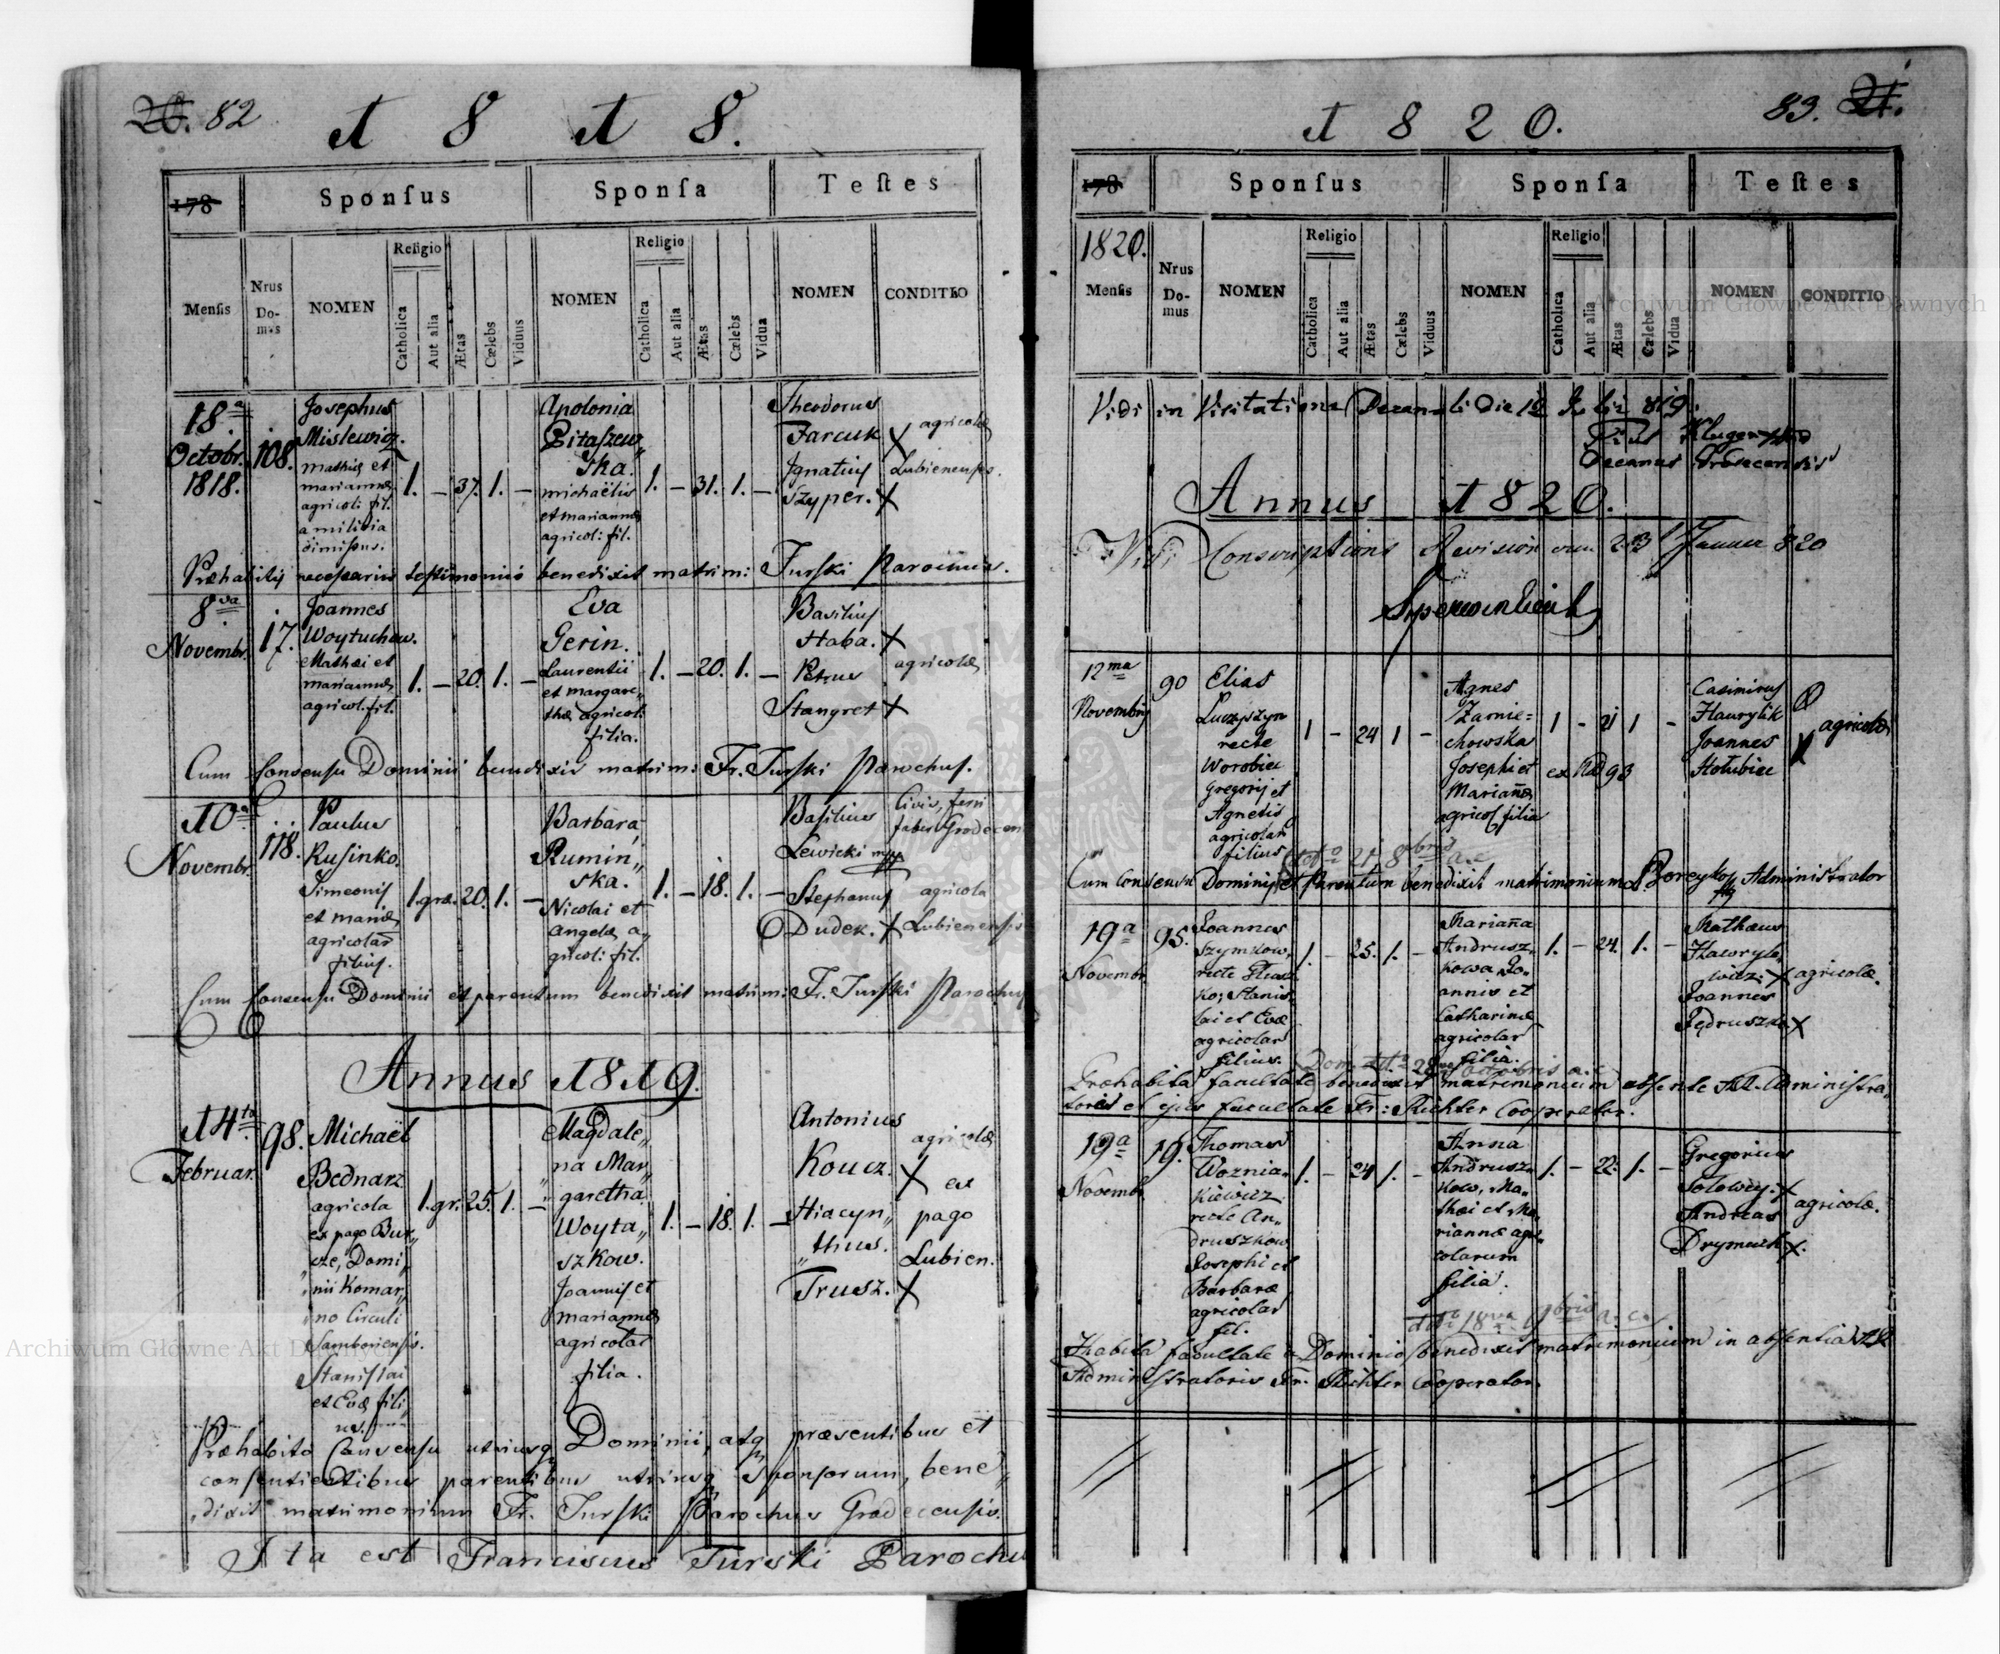 82
1 8 1 8.
178
Sponſus
Sponſa
Teſtes
Menſis
Nrus Domus
NOMEN
Religio
Catholica
Aut alia
Ætas
Cælebs
Viduus
NOMEN
Religio
Catholica
Aut alia
Ætas
Cælebs
Vidua
NOMEN
CONDITIO
18a
Octobr.
1818.
108.
Josephus
Mislewicz.
mathiæ et
mariannæ
agricoli fil.
a militia
dimissus.
1. – 37. 1. –
Apolonia
Pitaszew„
ska.
michaëlis
et mariannæ
agricol: fil.
1. – 31. 1. –
Theodorus
Farcuk X
Ignatius
Szyper. X
agricolæ
Lubienenses.
Præhabitis necessariis testimoniis benedixit matrim: Turski Parochus.
8va
Novembr.
17.
Joannes
Woytuchow.
Mathæi et
mariannæ
agricol. fil.
1. – 20. 1. –
Eva
Gerin.
Laurentii
et margare„
thæ agricol:
filia.
1. – 20. 1. –
Basilius
Haba. X
Petrus
Stangret X
agricolæ
Cum Consensu Dominii benedixit matrim: Fr. Turski Parochus.
10a
Novembr.
118.
Paulus
Rusinko.
Simeonis
et mariæ
agricolar
filius.
1. græ. 20. 1. –
Barbara
Rumin„
ska.
Nicolai et
angelæ a„
gricol: fil.
1. – 18. 1. –
Basilius
Lewicki mpp
Stephanus
Dudek. X
Civis, ferri
faber Grodecen
agricola
Lubienensis
Cum Consensu Dominii et parentum benedixit matrim: Fr. Turski Parochus
Annus 1819.
14ta
Februar.
98.
Michaël
Bednarz
agricola
ex pago Bur„
cze, Domi„
nii Komar„
no Circuli
Samboriensis.
Stanislai
et Evæ fili„
us.
1. gr. 25. 1. –
Magdale„
na Mar„
garetha
Woyta„
szkow.
Joannis et
mariannæ
agricolar
filia.
1. – 18. 1. –
Antonius
Koucz. X
Hiacyn„
thus.
Trusz. X
agricolæ
ex
pago
Lubien.
Præhabito Consensu utriusq Dominii, atq præsentibus et
consentientibus parentibus utriusq Sponsorum, bene„
dixit matrimonium Fr. Turski Parochus Grodecensis.
Ita est Franciscus Turski Parochu
83.
1 8 2 0.
178
Sponſus
Sponſa
Teſtes
1820.
Menſis
Nrus Domus
NOMEN
Religio
Catholica
Aut alia
Ætas
Cælebs
Viduus
NOMEN
Religio
Catholica
Aut alia
Ætas
Cælebs
Vidua
NOMEN
CONDITIO
Vidi in Visitatione Decanali Die 12 819.
Decanus Grodecensis
Annus 1820.
Vidi Conscriptions Revision 820
12ma
Novembris
90
Elias
Luczyszyn
recte
Worobiec
Gregorij et
Agnetis
agricolar
filius
1 – 24 1 –
Agnes
Zamie=
chowska
Josephi et
Mariañæ
agricol filia
1 – 21 1 –
ex No 93
Casimirus
Hawrylik
Joannes
Hołubiec
X
agricolæ
Cum consensu Dominij et Parentum benedixit matrimonium Boreyko Administrator
19a
Novembr.
95.
Joannes
Szymkow,
recte
Stanis„
lai et Evæ
agricolar
filius.
1. – 25. 1. –
Mariaña
Andrusz„
kowa, Jo„
annis et
Catharinæ
agricolar
filia.
1. – 24. 1. –
Mathæus
Hawryle„
wicz: X
Joannes
Jędruszko X
agricolæ.
Præhabita facultate benedixit matrimonium absente Administra„
toris et ejus facultate Fr: Richter Cooperator.
19a
Novembr.
19.
Thomas
Woznia„
kiewicz
recte An„
druszkow
Josephi et
Barbaræ
agricolar
fil.
1. – 24 1. –
Anna
Andrusz„
kow, Ma„
thæi et Ma„
riannæ agri„
colarum
filia.
1. – 22. 1. –
Gregorius
Solowey. X
Andreas
Drymuch X.
agricolæ.
Habita facultate a Dominio benedixit matrimonium in absentia
Administratoris Fr. Richter Cooperator.
Archiwum Główne Akt Dawnych
Archiwum Główne Akt Dawnych